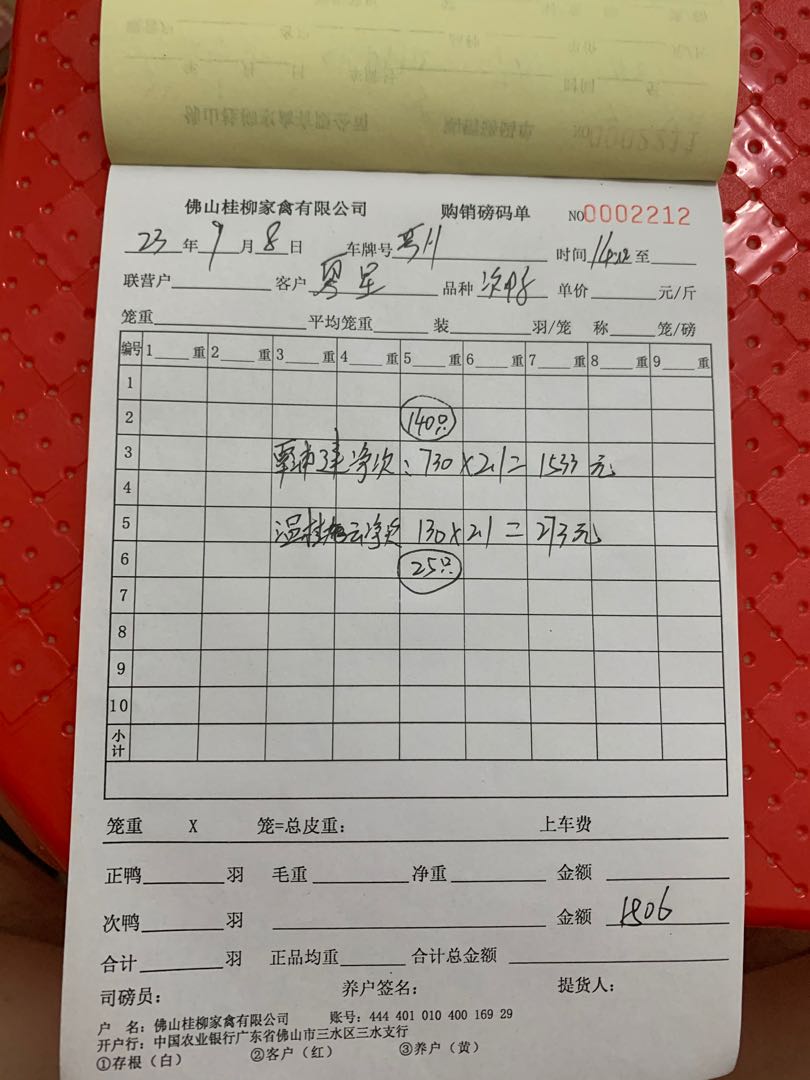 NO 0002211
佛山桂柳家禽有限公司 购销磅码单 NO 0002212
23 年 9 月 8 日 车牌号 时间 14:12 至
联营户 客户 粤星 品种 次鸭 单价 元/斤
笼重 平均笼重 装 羽/笼 称 笼/磅
编号 1 重 2 重 3 重 4 重 5 重 6 重 7 重 8 重 9 重
1
2 140只
3 净次: 730×2.1= 1533 元
4
5 净次 130×2.1= 273元
6 25只
7
8
9
10
小计
笼重 X 笼=总皮重: 上车费
正鸭 羽 毛重 净重 金额
次鸭 羽 金额 1806
合计 羽 正品均重 合计总金额
司磅员: 养户签名: 提货人:
户 名: 佛山桂柳家禽有限公司 账号: 444 401 010 400 169 29
开户行: 中国农业银行广东省佛山市三水区三水支行
①存根(白) ②客户(红) ③养户(黄)